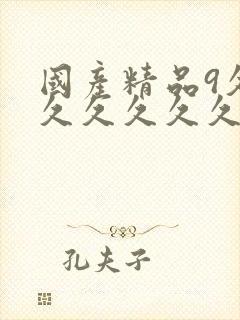 國產精品9久
久久久久久
孔夫子